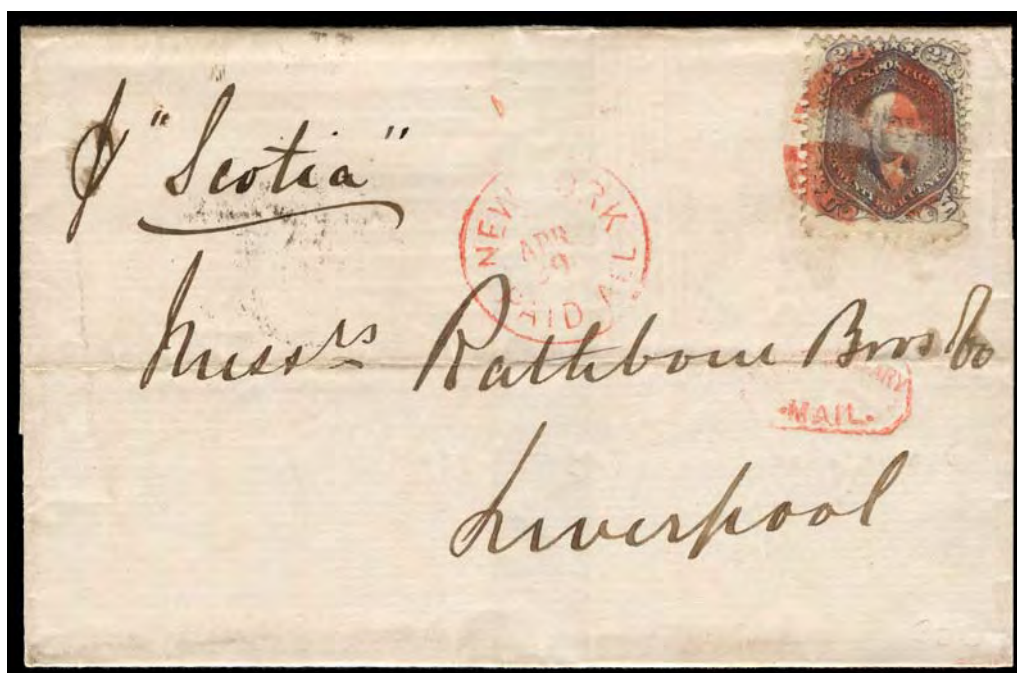 24 24
U.S. POSTAGE
℘ "Scotia"
NEW YORK
APR
29
PAID ALL
Messrs Rathbone Bros & Co
MAIL.
Liverpool